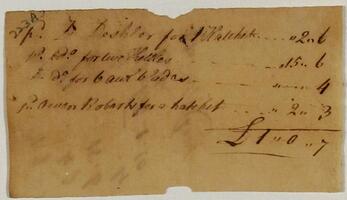 pd. D Deshler for 1 Hatchet .. " 2 " 6
pd. do. for two Kettles " 15 " 6
Do. do. for 6 awl blades " " 4
pd. Owen Robarts for a hatchet " 2 " 3
£ 1 " 0 " 7